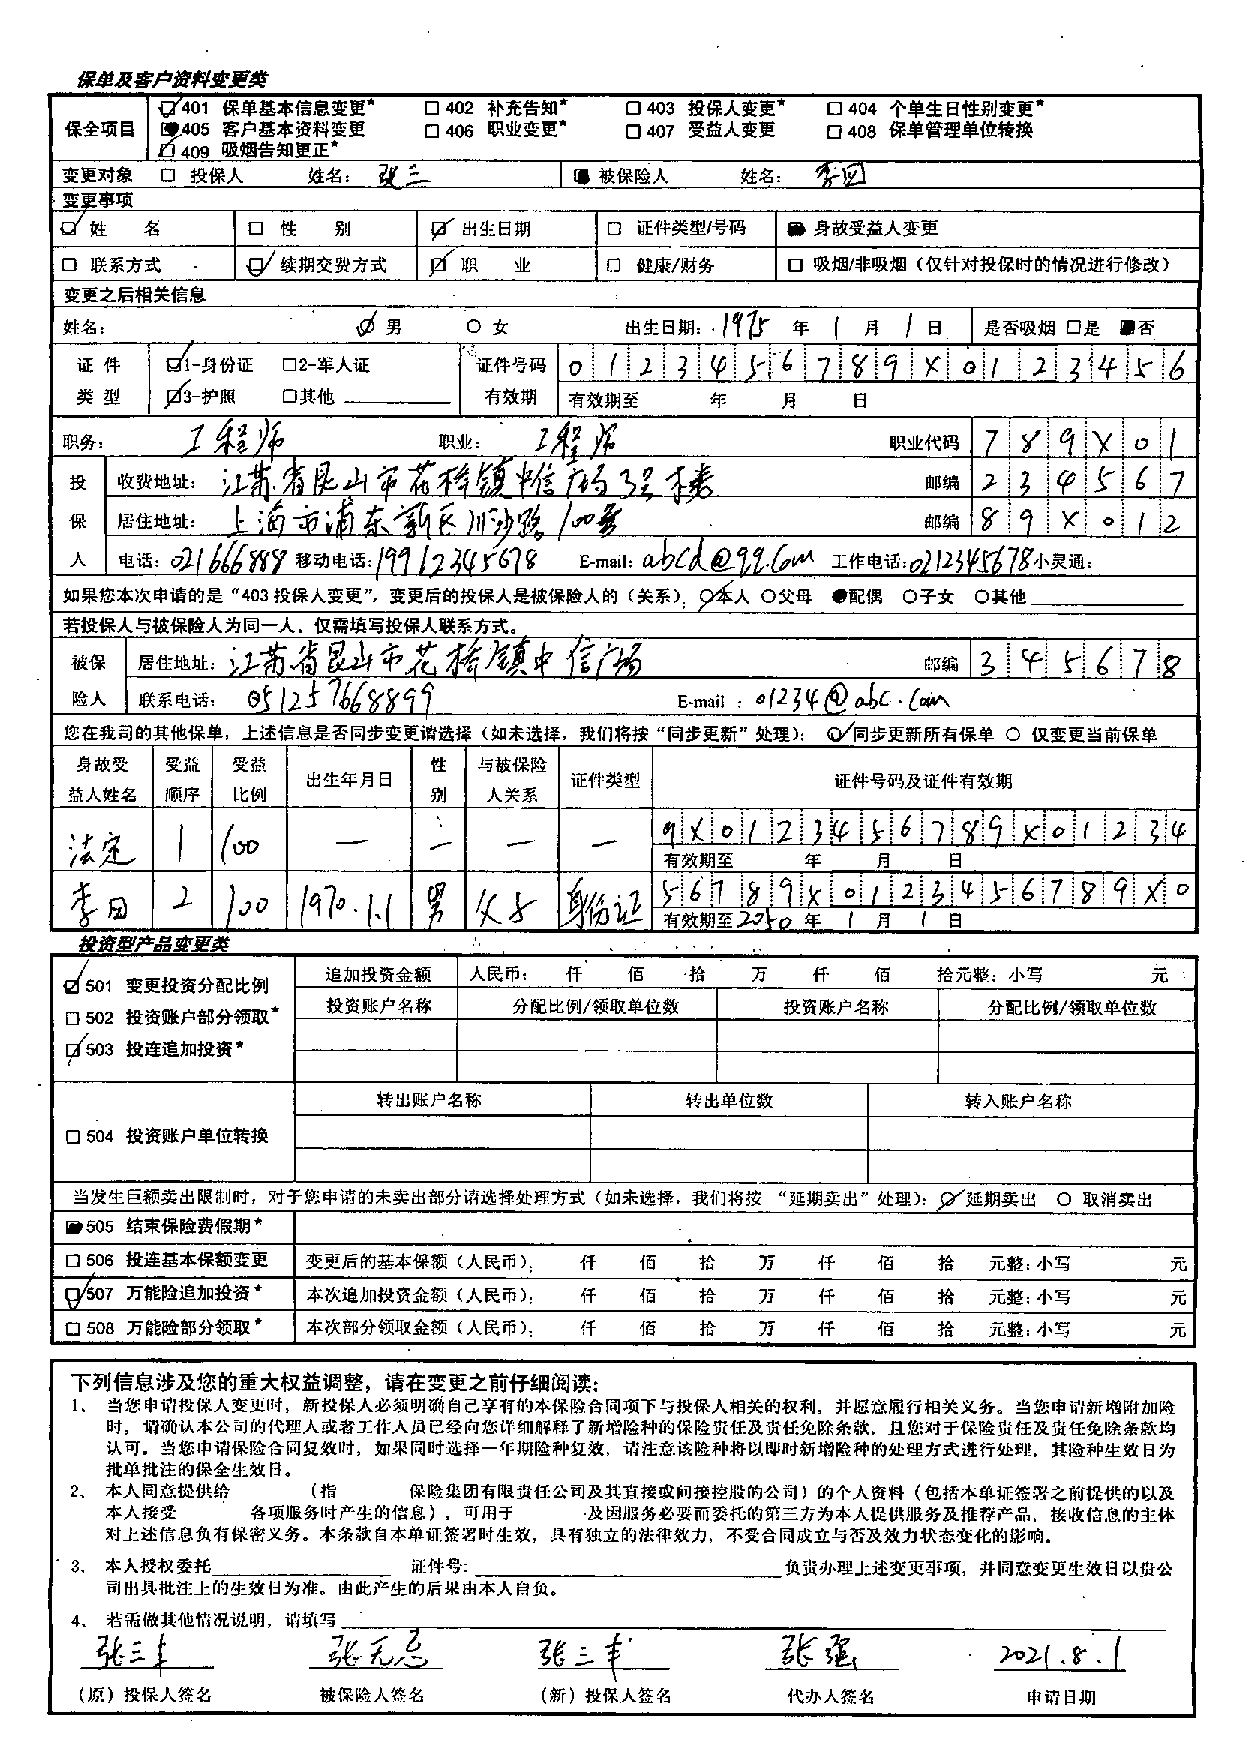 保单及客户资料变更类
保全项目 ☑401 保单基本信息变更* □402 补充告知* □403 投保人变更* □404 个单生日性别变更*
■405 客户基本资料变更 □406 职业变更* □407 受益人变更 □408 保单管理单位转换
☑409 吸烟告知更正*
变更对象 □ 投保人 姓名: 张三 ■ 被保险人 姓名: 李四
变更事项
☑ 姓 名 □ 性 别 ☑ 出生日期 □ 证件类型/号码 ■ 身故受益人变更
□ 联系方式 ☑ 续期交费方式 ☑ 职 业 □ 健康/财务 □ 吸烟/非吸烟(仅针对投保时的情况进行修改)
变更之后相关信息
姓名: ☑ 男 ○ 女 出生日期: 1975 年 1 月 1 日 是否吸烟 □是 ■否
证件类型 ☑1-身份证 □2-军人证 证件号码 0123456789X0123456
☑3-护照 □其他 有效期 有效期至 年 月 日
职务: 工程师 职业: 工程师 职业代码 789X01
投保人 收费地址: 江苏省昆山市花桥镇中信广场3号楼 邮编 234567
居住地址: 上海市浦东新区川沙路100号 邮编 89X012
电话: 021666888 移动电话: 19912345678 E-mail: abcd@qq.com 工作电话: 0212345678 小灵通:
如果您本次申请的是“403投保人变更”, 变更后的投保人是被保险人的(关系): ☑本人 ○父母 ●配偶 ○子女 ○其他
若投保人与被保险人为同一人, 仅需填写投保人联系方式。
被保险人 居住地址: 江苏省昆山市花桥镇中信广场 邮编 345678
联系电话: 051257668899 E-mail : 01234@abc.com
您在我司的其他保单, 上述信息是否同步变更请选择(如未选择, 我们将按“同步更新”处理): ☑同步更新所有保单 ○ 仅变更当前保单
身故受益人姓名 受益顺序 受益比例 出生年月日 性别 与被保险人关系 证件类型 证件号码及证件有效期
法定 1 100 — — — — 9X0123456789X01234
有效期至 年 月 日
李田 2 100 1970.1.1 男 父子 身份证 56789X0123456789X0
有效期至2050 年 1 月 1 日
投资型产品变更类
☑501 变更投资分配比例 追加投资金额 人民币: 仟 佰 拾 万 仟 佰 拾元整: 小写 元
□502 投资账户部分领取* 投资账户名称 分配比例/领取单位数 投资账户名称 分配比例/领取单位数
☑503 投连追加投资*
□504 投资账户单位转换 转出账户名称 转出单位数 转入账户名称
当发生巨额卖出限制时, 对于您申请的未卖出部分请选择处理方式(如未选择, 我们将按 “延期卖出”处理): ☑ 延期卖出 ○ 取消卖出
■505 结束保险费假期*
□506 投连基本保额变更 变更后的基本保额(人民币): 仟 佰 拾 万 仟 佰 拾 元整: 小写 元
☑507 万能险追加投资* 本次追加投资金额(人民币): 仟 佰 拾 万 仟 佰 拾 元整: 小写 元
□508 万能险部分领取* 本次部分领取金额(人民币): 仟 佰 拾 万 仟 佰 拾 元整: 小写 元
下列信息涉及您的重大权益调整, 请在变更之前仔细阅读:
1、 当您申请投保人变更时, 新投保人必须明确自己享有的本保险合同项下与投保人相关的权利, 并愿意履行相关义务。当您申请新增附加险
时, 请确认本公司的代理人或者工作人员已经向您详细解释了新增险种的保险责任及责任免除条款, 且您对于保险责任及责任免除条款均
认可。当您申请保险合同复效时, 如果同时选择一年期险种复效, 请注意该险种将以即时新增险种的处理方式进行处理, 其险种生效日为
批单批注的保全生效日。
2、 本人同意提供给 (指 保险集团有限责任公司及其直接或间接控股的公司)的个人资料(包括本单证签署之前提供的以及
本人接受 各项服务时产生的信息), 可用于 及因服务必要而委托的第三方为本人提供服务及推荐产品, 接收信息的主体
对上述信息负有保密义务。本条款自本单证签署时生效, 具有独立的法律效力, 不受合同成立与否及效力状态变化的影响。
3、 本人授权委托 证件号: 负责办理上述变更事项, 并同意变更生效日以贵公
司出具批注上的生效日为准。由此产生的后果由本人自负。
4、 若需做其他情况说明, 请填写
张三丰 张无忌 张三丰 张强 2021.8.1
(原)投保人签名 被保险人签名 (新)投保人签名 代办人签名 申请日期